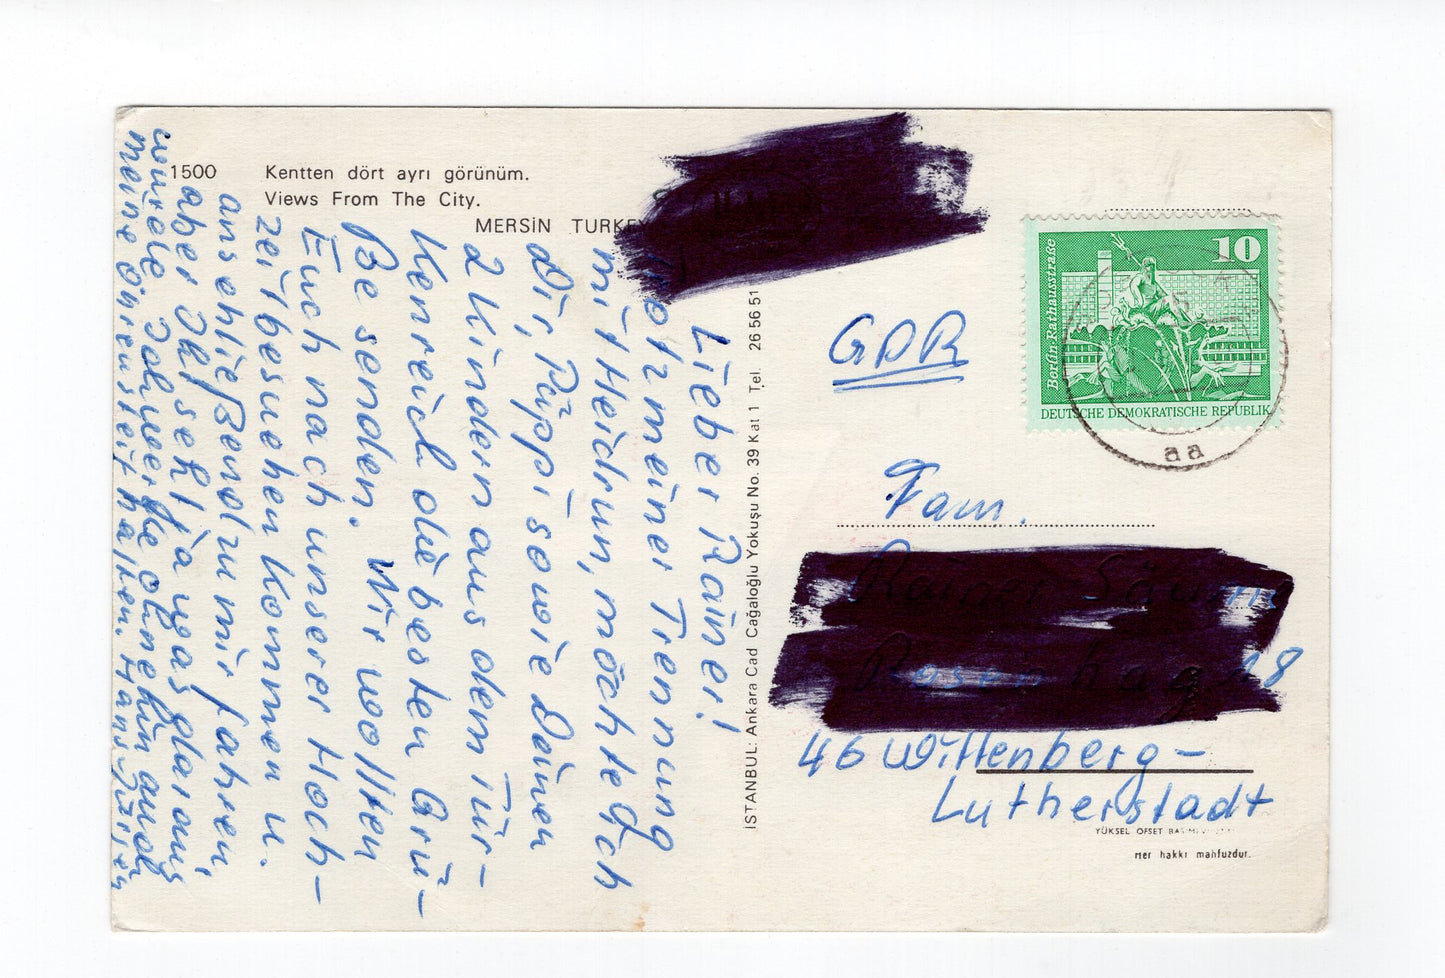 1500
Kentten dört ayrı görünüm.
Views From The City.
MERSİN TURKEY
Lieber Rainer!
Trotz meiner Trennung
mit Heidrun, möchte ich
Dir, Püppi sowie Deinen
2 Kindern aus dem Tür-
kenreich die besten Grü-
ße senden. Wir wollten
Euch nach unserer Hoch-
zeit besuchen kommen u.
anschließend zu mir fahren,
aber Ihr seht ja was daraus
wurde. Ich werde ohnehin auch
meine Ohren steif halten. Hans-Jürgen
İSTANBUL: Ankara Cad Cağaloğlu Yokuşu No. 39 Kat 1 Tel. 26 56 51
GDR
10
Berlin-Rathausstraße
DEUTSCHE DEMOKRATISCHE REPUBLIK
aa
Fam.
18
46 Wittenberg-
Lutherstadt
YÜKSEL OFSET
Her hakkı mahfuzdur.